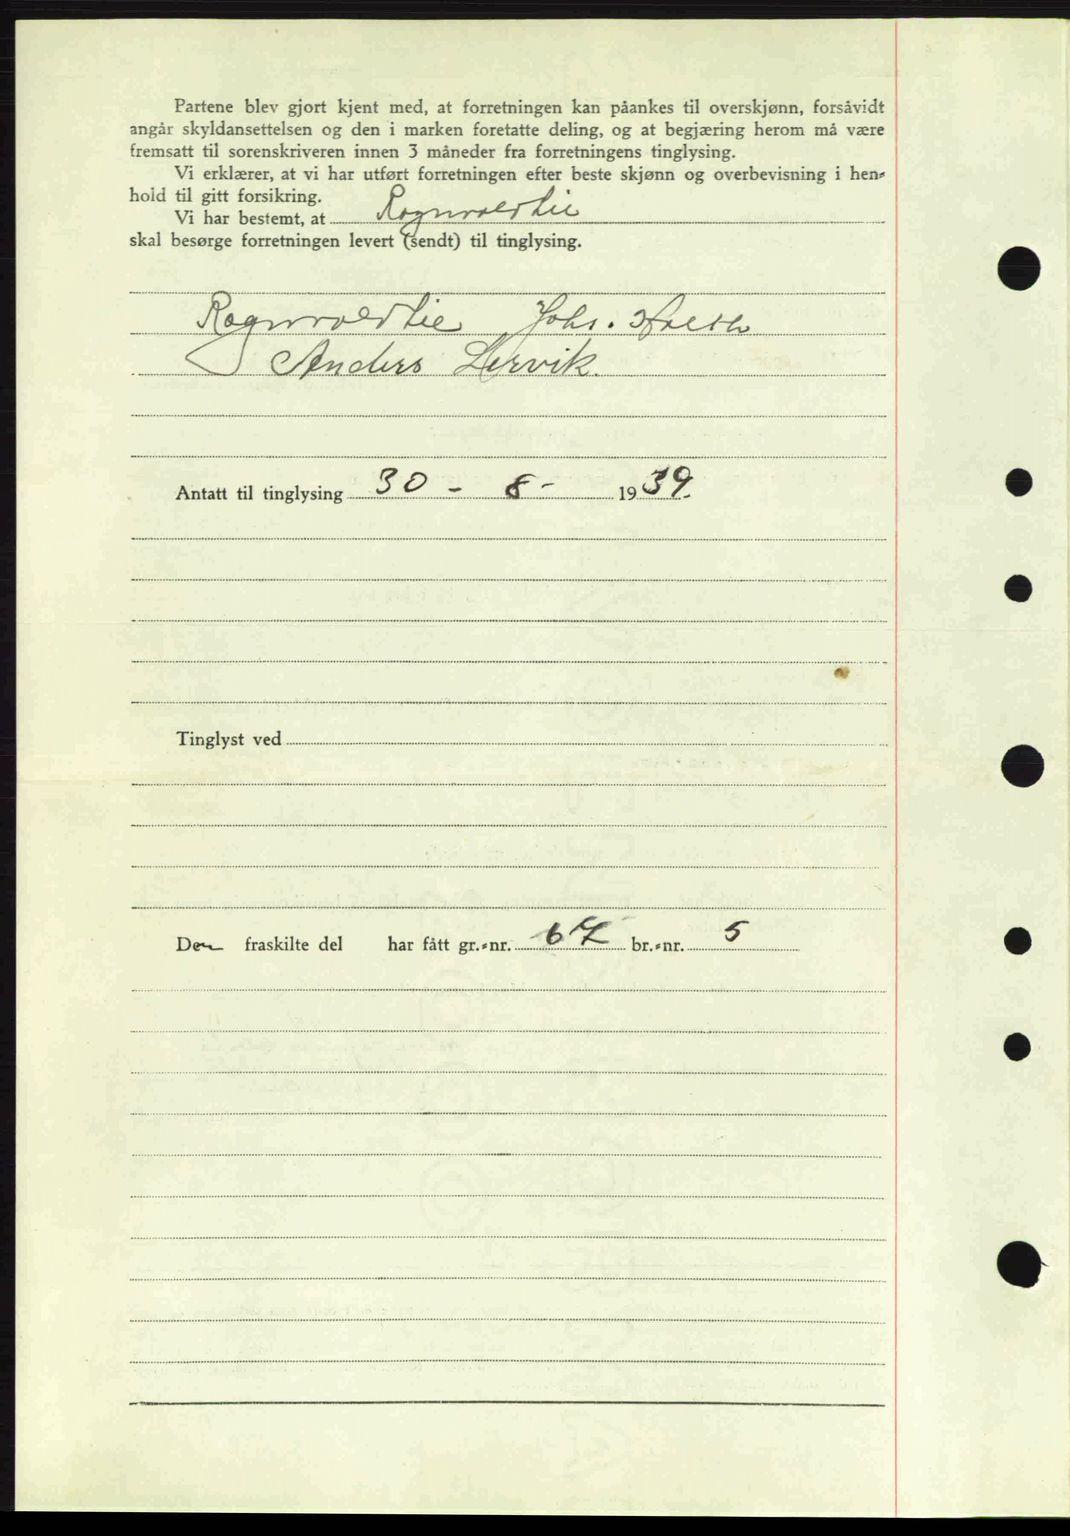 Partene blev gjort kjent med, at forretningen kan påankes til overskjønn, forsåvidt
angår skyldansettelsen og den i marken foretatte deling, og at begjæring herom må være
fremsatt til sorenskriveren innen 3 måneder fra forretningens tinglysing.
Vi erklærer, at vi har utført forretningen efter beste skjønn og overbevisning i hen-
hold til gitt forsikring.
Vi har bestemt, at Rognvald Lie
skal besørge forretningen levert (sendt) til tinglysing.
Rognvald Lie Johs.
Anders Lervik.
Antatt til tinglysing 30 - 8 - 1939.
Tinglyst ved
Den fraskilte del har fått gr.-nr. 67 br.-nr. 5